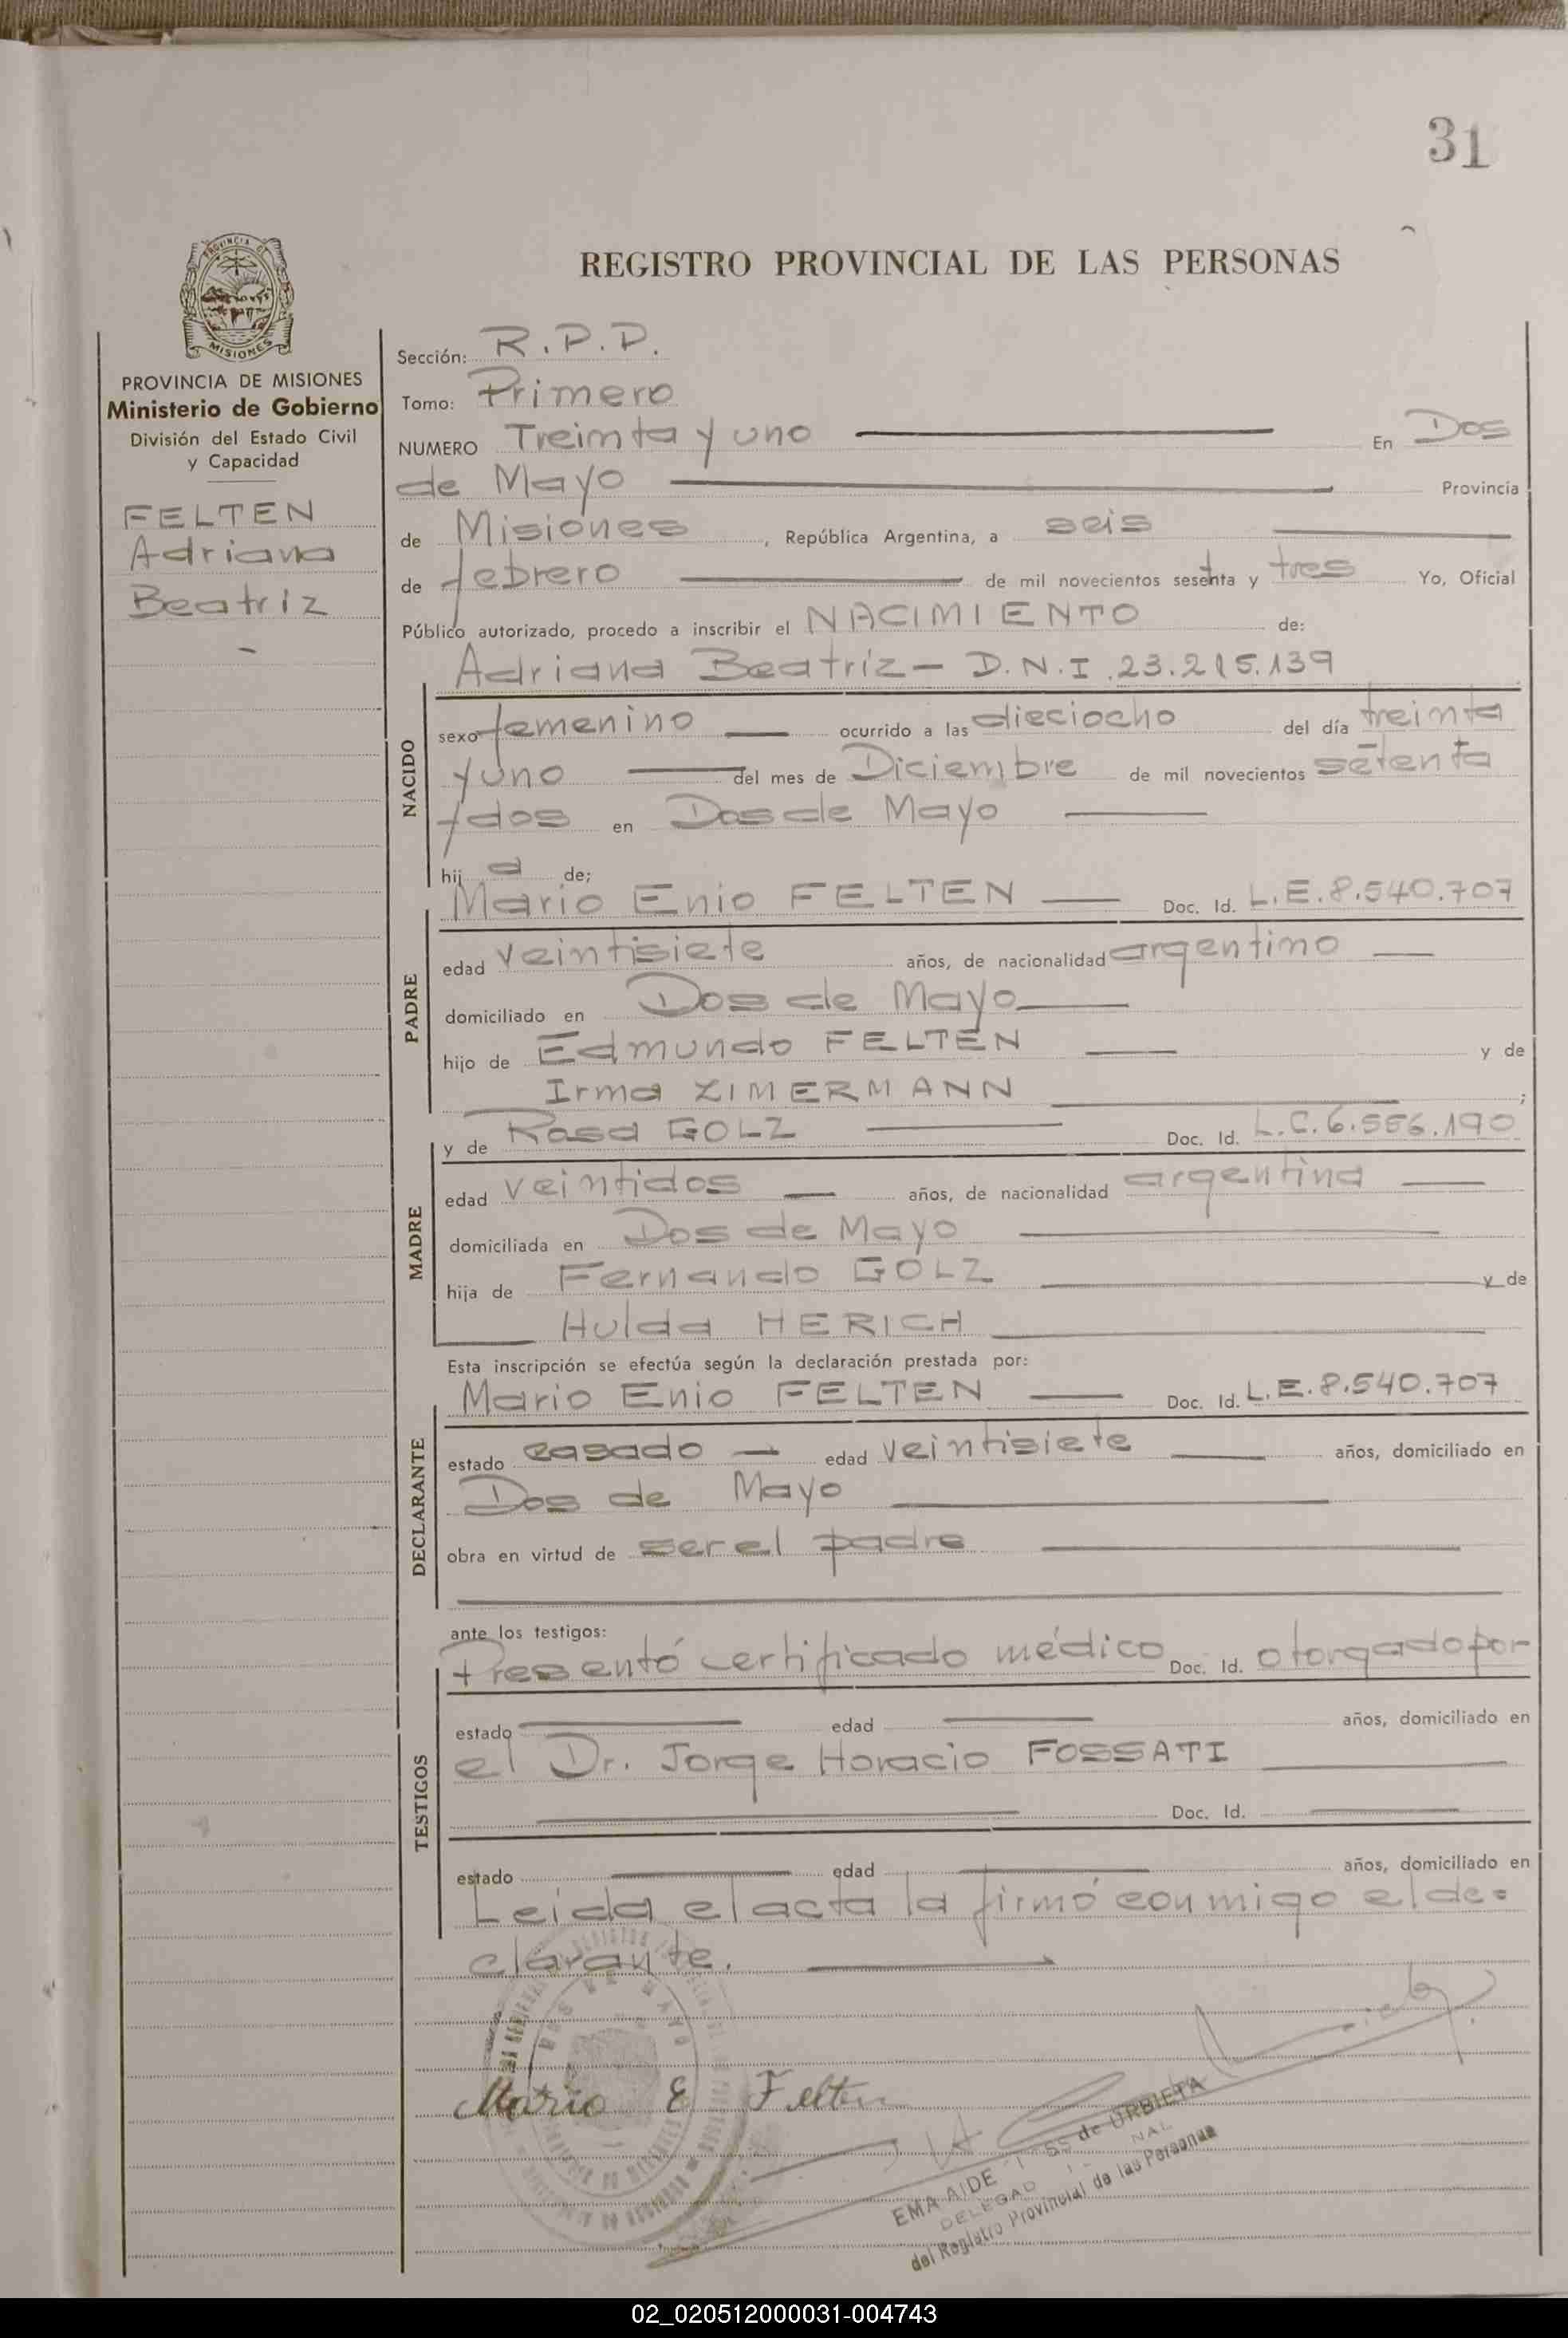 31
REGISTRO PROVINCIAL DE LAS PERSONAS
PROVINCIA DE
MISIONES
PROVINCIA DE MISIONES
Ministerio de Gobierno
División del Estado Civil
y Capacidad
FELTEN
Adriana
Beatriz
Sección: R.P.D.
Tomo: Primero
NUMERO Treinta y uno En Dos
de Mayo Provincia
de Misiones, República Argentina, a seis
de febrero de mil novecientos setenta y tres Yo, Oficial
Público autorizado, procedo a inscribir el NACIMIENTO de:
Adriana Beatriz - D.N.I. 23.215.139
NACIDO
sexo femenino ocurrido a las dieciocho del día treinta
y uno del mes de Diciembre de mil novecientos setenta
y dos en Dos de Mayo
hij a de;
Mario Enio FELTEN Doc. Id. L.E.8.540.707
PADRE
edad veintisiete años, de nacionalidad argentino
domiciliado en Dos de Mayo
hijo de Edmundo FELTEN y de
Irma ZIMERMANN ;
y de Rosa GOLZ Doc. Id. L.C.6.556.190
MADRE
edad veintidos años, de nacionalidad argentina
domiciliada en Dos de Mayo
hija de Fernando GOLZ y de
Hulda HERICH
Esta inscripción se efectúa según la declaración prestada por:
Mario Enio FELTEN Doc. Id. L.E.8.540.707
DECLARANTE
estado casado edad veintisiete años, domiciliado en
Dos de Mayo
obra en virtud de ser el padre
ante los testigos:
Presentó certificado médico Doc. Id. otorgado por
TESTIGOS
estado edad años, domiciliado en
el Dr. Jorge Horacio FOSSATI
Doc. Id.
estado edad años, domiciliado en
Leida el acta la firmó conmigo el de=
clarante.
Mario E Felten
EMA AIDE de URBIETA
DELEGAD
del Registro Provincial de las Personas
02_020512000031-004743